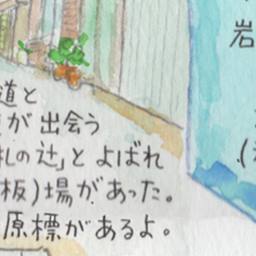 道と
が出会う
札の辻」とよばれ
板)場があった。
原標があるよ。
岩